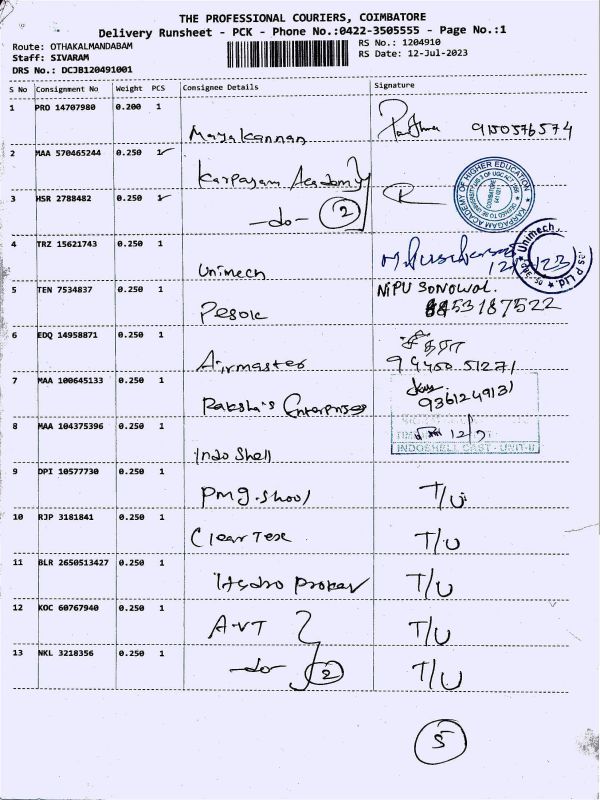 THE PROFESSIONAL COURIERS, COIMBATORE
Delivery Runsheet - PCK - Phone No.:0422-3505555 - Page No.:1
Route: OTHAKALMANDABAM
RS No.: 1204910
Staff: SIVARAM
RS Date: 12-Jul-2023
DRS No.: DCJB120491001
S No Consignment No Weight PCS Consignee Details Signature
1 PRO 14707980 0.200 1
Mayakannan 9150576574
2 MAA 570465244 0.250 1
Karpagam Academy
KARPAGAM ACADEMY OF HIGHER EDUCATION
3 HSR 2788482 0.250 1
-do- 2
4 TRZ 15621743 0.250 1
Unimech
Unimech
5 TEN 7534837 0.250 1
NIPU SONOWAL.
8853187522
6 EDQ 14958871 0.250 1
சீதா
Airmaster 94450 51271
7 MAA 100645133 0.250 1
Raksha's Enterprises 9361249131
8 MAA 104375396 0.250 1
12/7
Indo Shell
INDOSHELL CAST - UNIT-II
9 DPI 10577730 0.250 1
T/U
10 RJP 3181841 0.250 1
Clear Tex T/U
11 BLR 2650513427 0.250 1
T/U
12 KOC 60767940 0.250 1
A-VT T/U
13 NKL 3218356 0.250 1
-do- 2 T/U
5